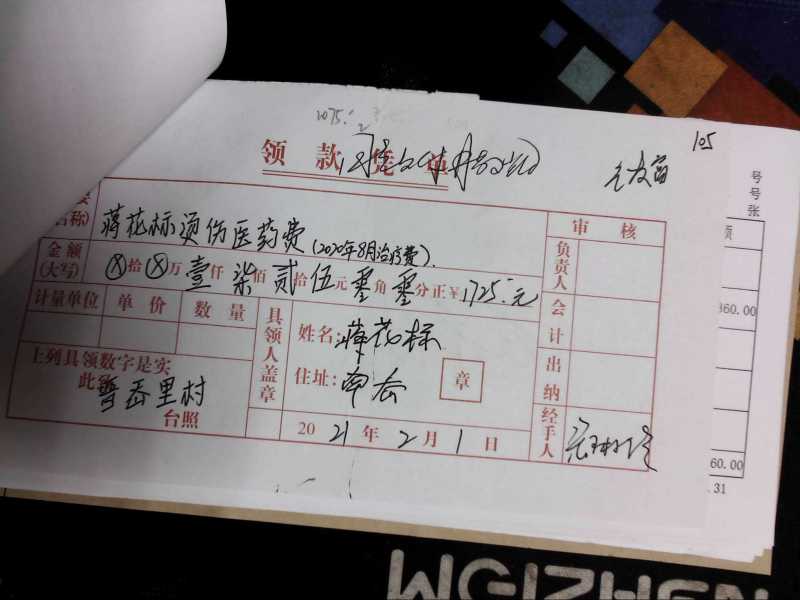 105
领款凭单
号
号
张
要
名称)
蒋花标烫伤医药费(2020年8月治疗费).
审核
金额
(大写)
⊗拾⊗万壹仟柒佰贰拾伍元零角零分正¥1725.元
负责人
计量单位 单价 数量
具领人盖章
姓名:蒋花标
会计
860.00
上列具领数字是实
此致
住址:
章
出纳
里村
台照
2021年2月1日
经手人
60.00
.31
WEIZHEN